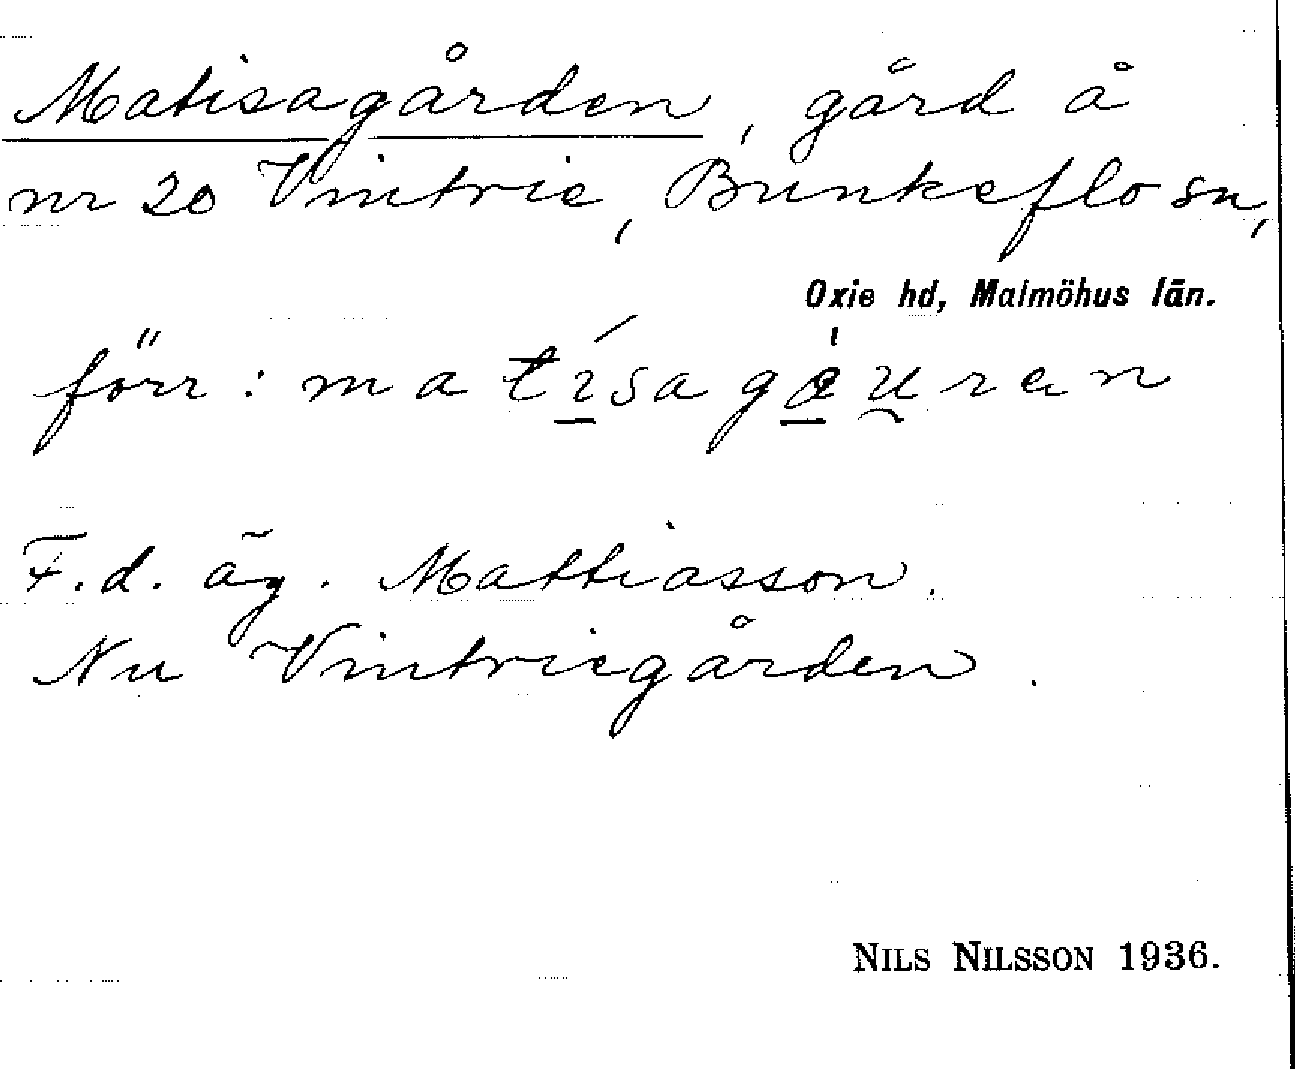 Matisagården, gård å
nr 20 Vintrie, Bunkeflo sn,
Oxie hd, Malmöhus län.
förr:
F.d. äg. Mattiasson.
Nu Vintriegården.
NILS NILSSON 1936.